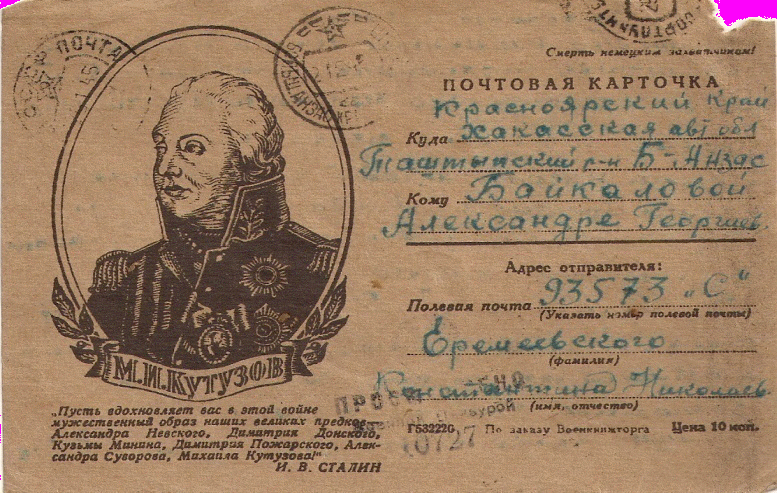 СССР ПОЧТА
Смерть немецким захватчикам!
ПОЧТОВАЯ КАРТОЧКА
Красноярский край
Куда Хакасская авт обл
Таштыпский р-н Б-Анзас
Кому Байкаловой
Александре Георгиев.
Адрес отправителя:
Полевая почта 93573 „С"
(Указать номер полевой почты)
Еремеевского
(фамилия)
Константина Николаев.
(имя, отчество)
Г532220 По заказу Военкнижторга Цена 10 коп.
М.И.КУТУЗОВ
„Пусть вдохновляет вас в этой войне
мужественный образ наших великих предков—
Александра Невского, Димитрия Донского,
Кузьмы Минина, Димитрия Пожарского, Алек-
сандра Суворова, Михаила Кутузова!"
И. В. СТАЛИН
10727